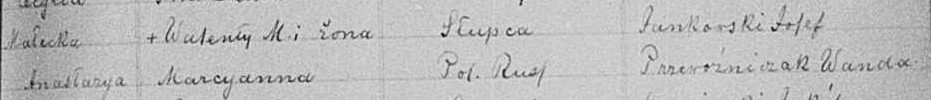 Małecka + Walenty M. i żona Słupca Jankorski Josef
Anastazya Marcyanna Pol. Russ Przewoźniczak Wanda